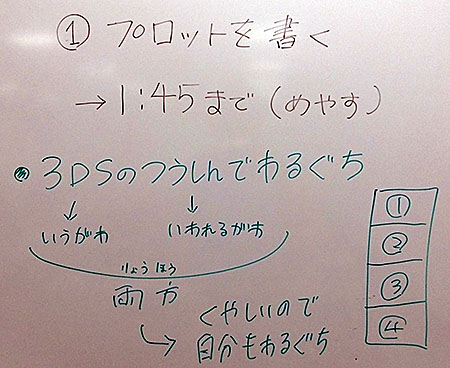 ① プロットを書く
→1:45まで(めやす)
3DSのつうしんでわるぐち
↓ ↓
いうがわ いわれるがわ
りょうほう
両方
くやしいので
自分もわるぐち
①
②
③
④